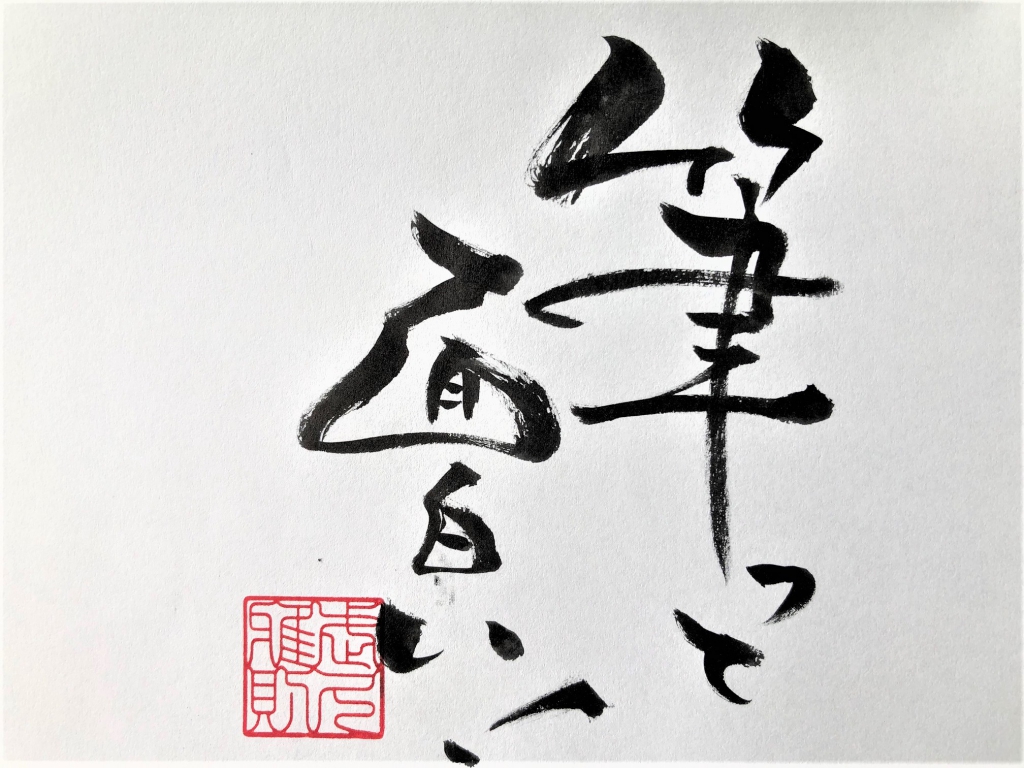 筆って
面白い!